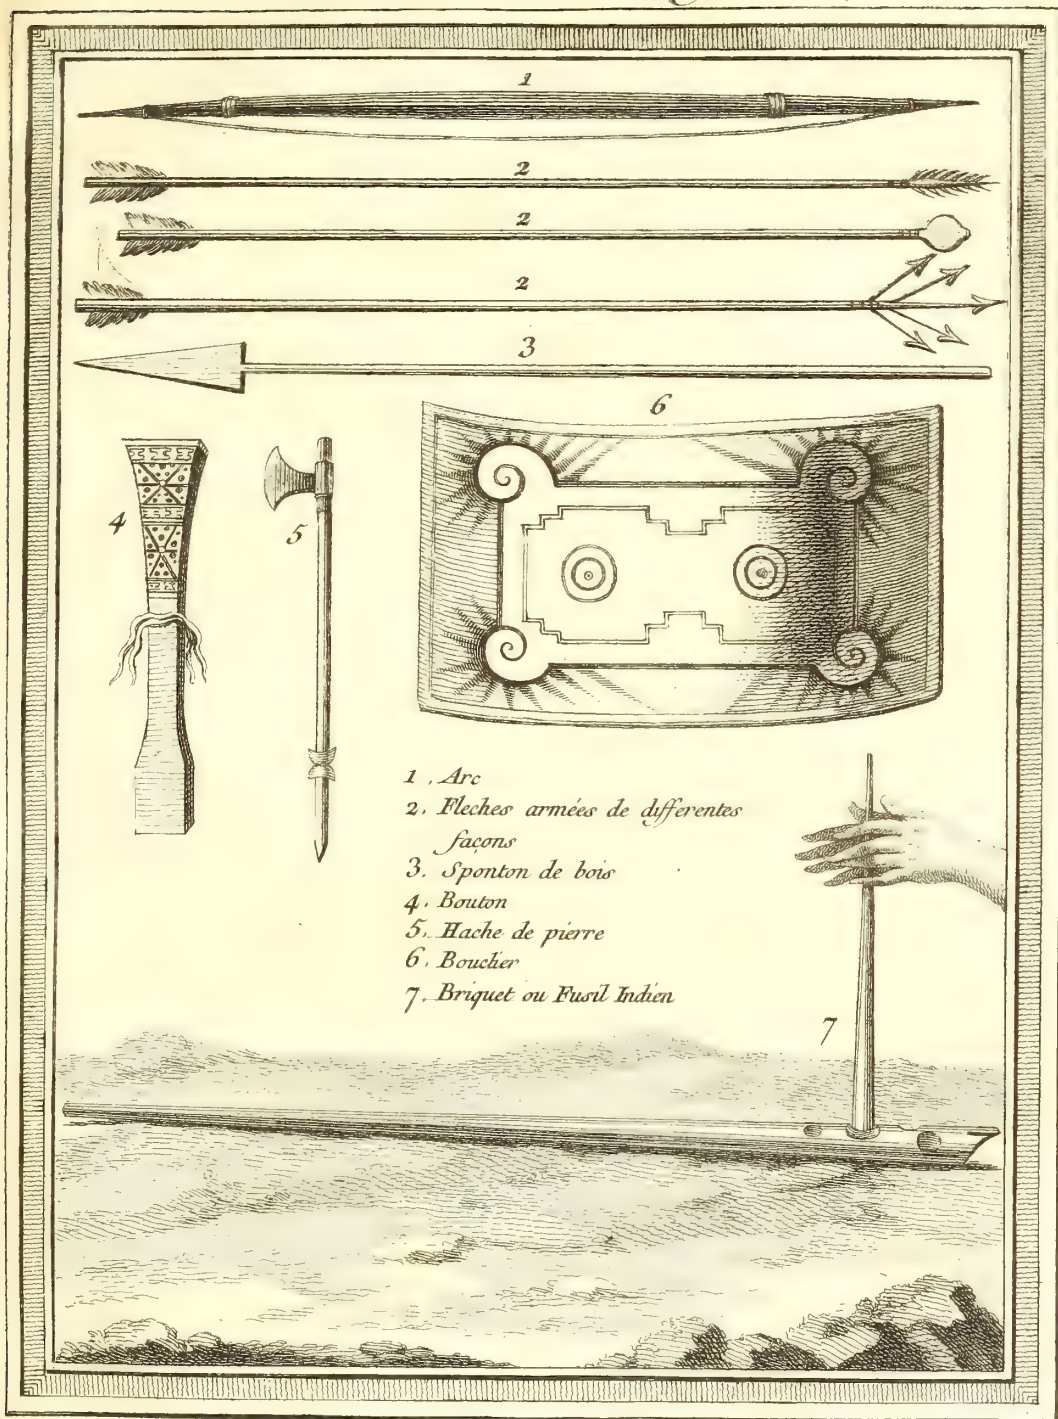 1
2
2
2
3
6
4
5
1. Arc
2. Fleches armées de differentes
façons
3. Sponton de bois
4. Bouton
5. Hache de pierre
6. Bouclier
7. Briquet ou Fusil Indien
7